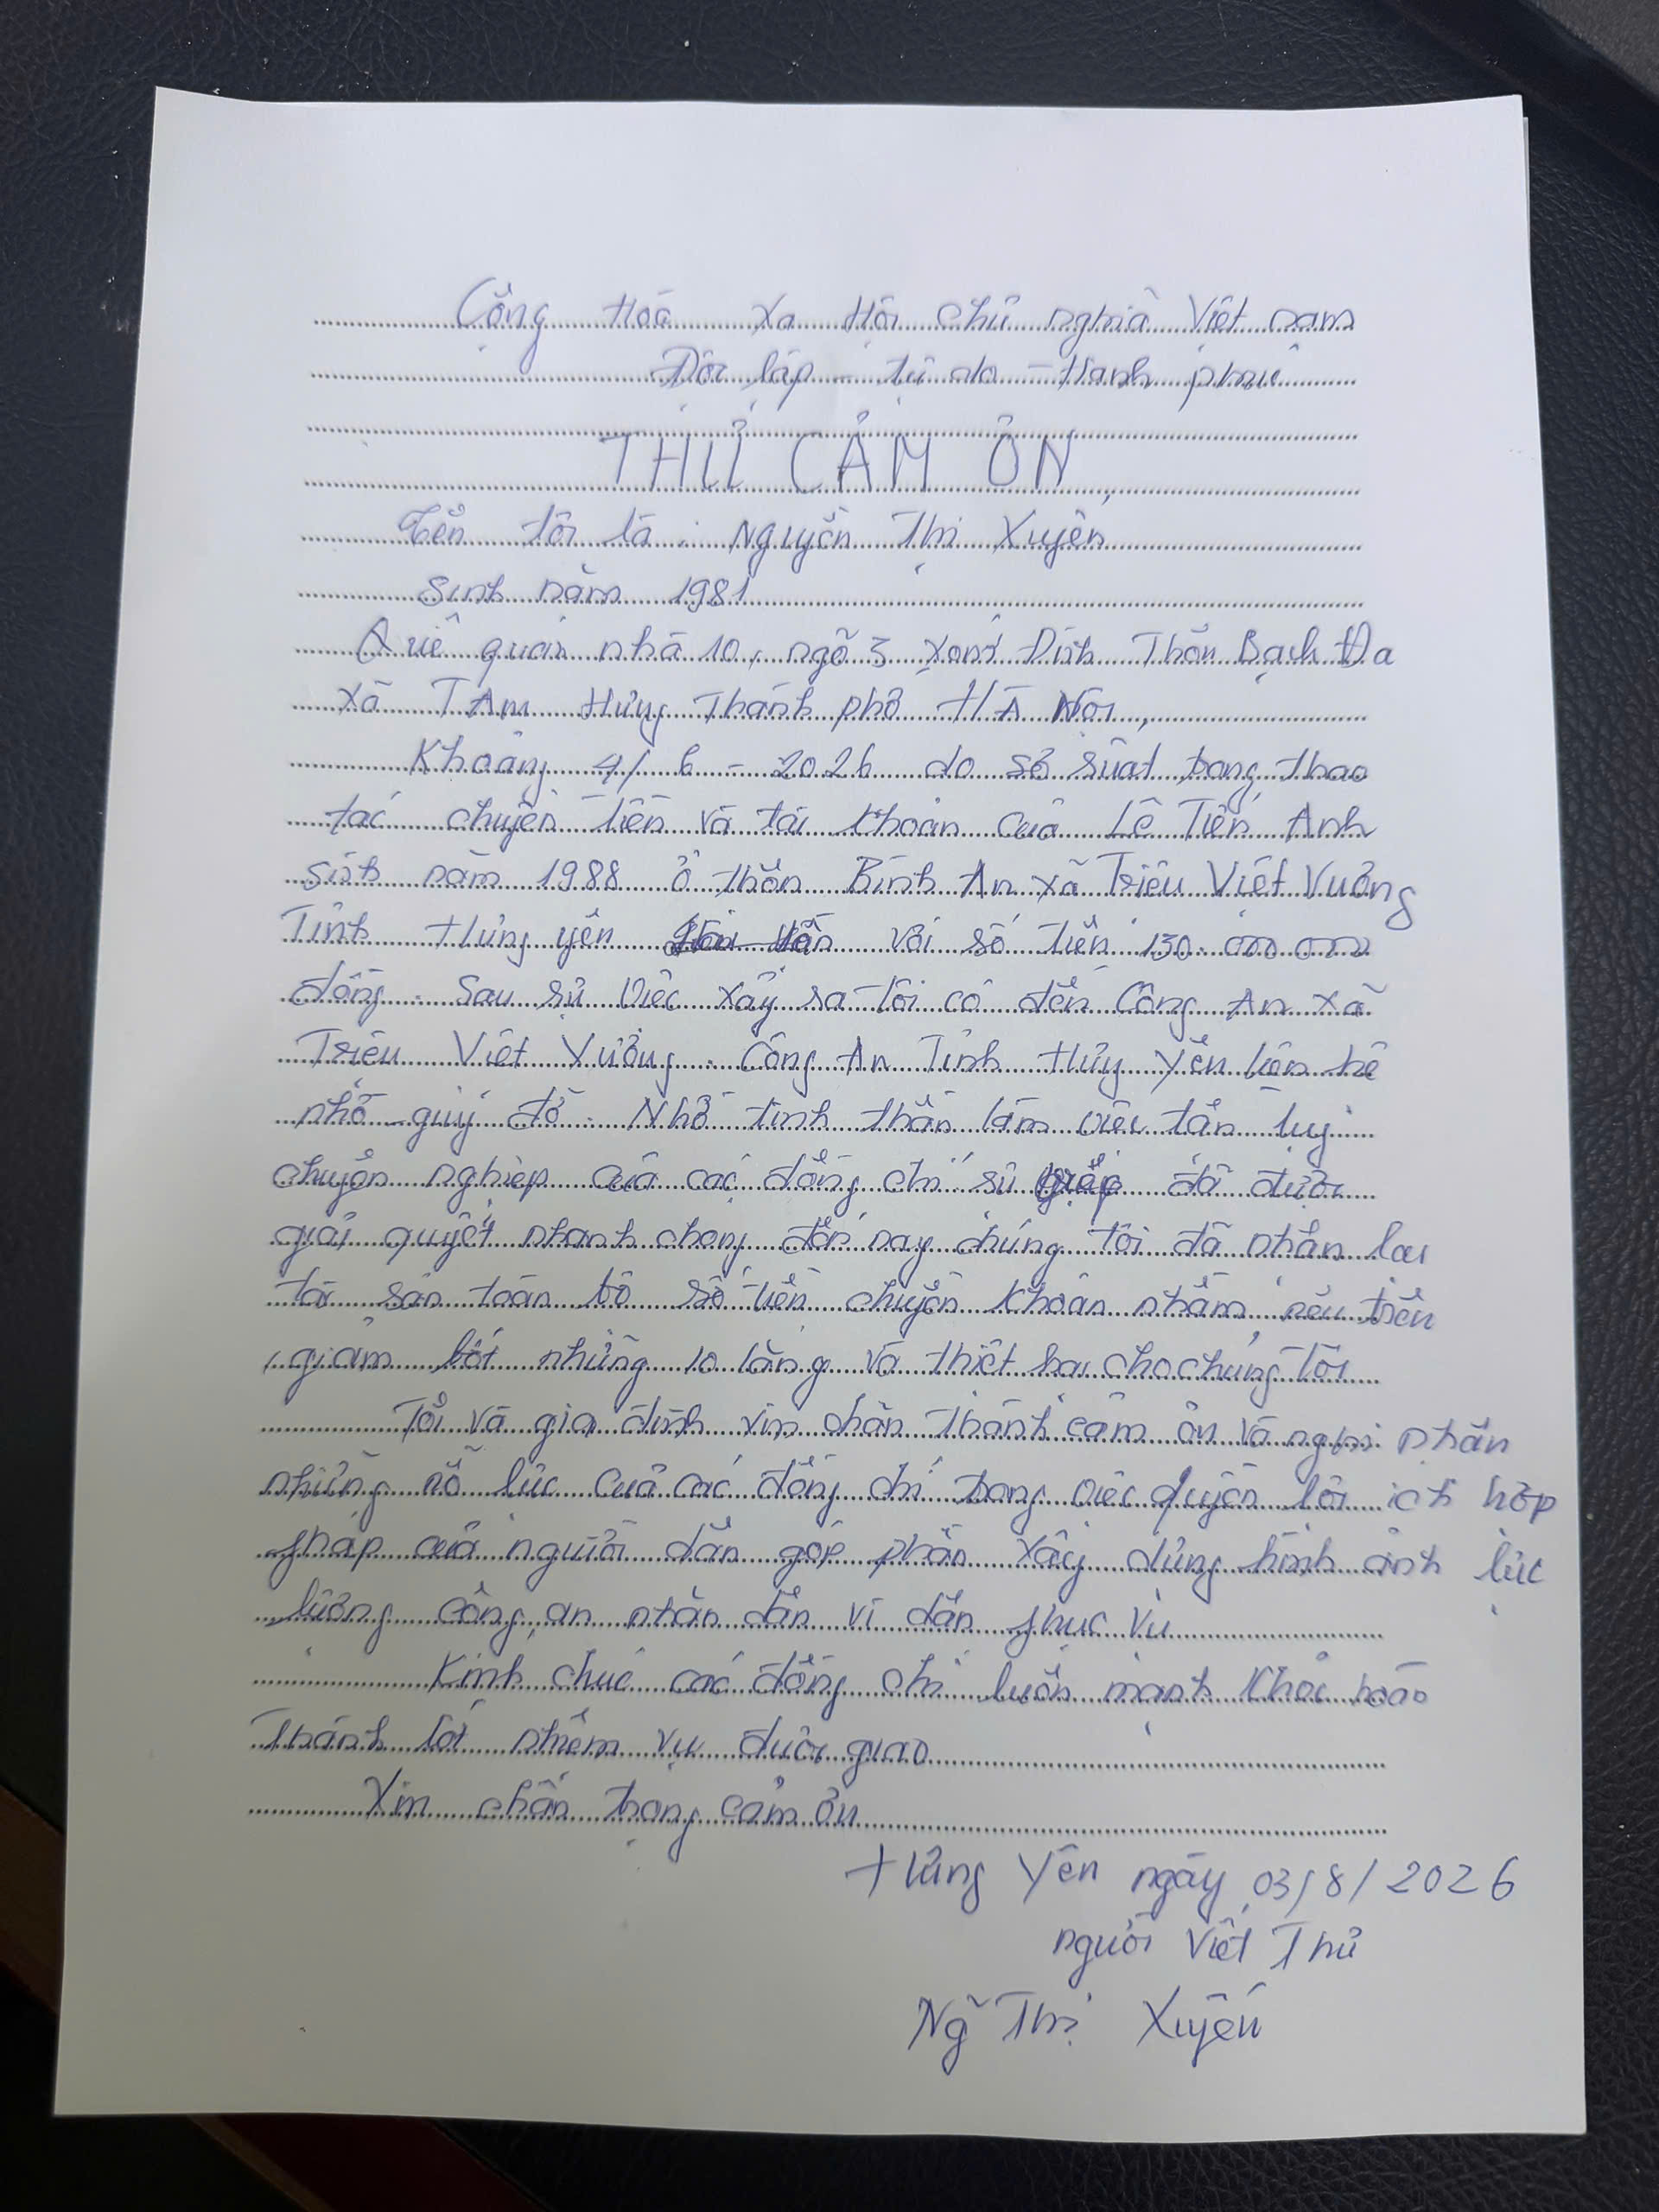 Cộng Hoà Xã Hội chủ nghĩa Việt nam
Độc lập - tự do - Hạnh phúc
THƯ CẢM ƠN
Tên tôi là : Nguyễn Thị Xuyên
Sinh năm 1981
Quê quán nhà 10, ngõ 3 xóm Đình Thôn Bạch Đa
xã TAm Hưng Thành phố HÀ Nội,
Khoảng 4/6-2026 do sơ suất trong thao
tác chuyển tiền và tài khoản của Lê Tiến Anh
sinh năm 1988 ở thôn Bình An xã Triệu Việt Vương
Tỉnh Hưng yên với số tiền 130.000.000
đồng. Sau sự việc xảy ra tôi có đến Công An xã
Triệu Việt Vương. Công An Tỉnh Hưng Yên liên hệ
nhờ giúp đỡ. Nhờ tinh thần làm việc tận tuỵ
chuyên nghiệp của các đồng chí sự đã được
giải quyết nhanh chóng đến nay chúng tôi đã nhận lại
tài sản toàn bộ số tiền chuyển khoản nhầm nêu trên
giảm bớt những lo lắng và thiệt hại cho chúng Tôi
Tôi và gia đình xin chân thành cảm ơn và nghi nhận
những nỗ lực của các đồng chí trong việc quyền lợi ích hợp
pháp của người dân góp phần xây dựng hình ảnh lực
lượng công an nhân dân vì dân phục vụ
Kính chúc các đồng chí luôn mạnh khoẻ hoàn
Thành tốt nhiệm vụ được giao
Xin chân trọng cảm ơn
Hưng Yên ngày 03/8/2026
người Viết Thư
Ng Thị Xuyên